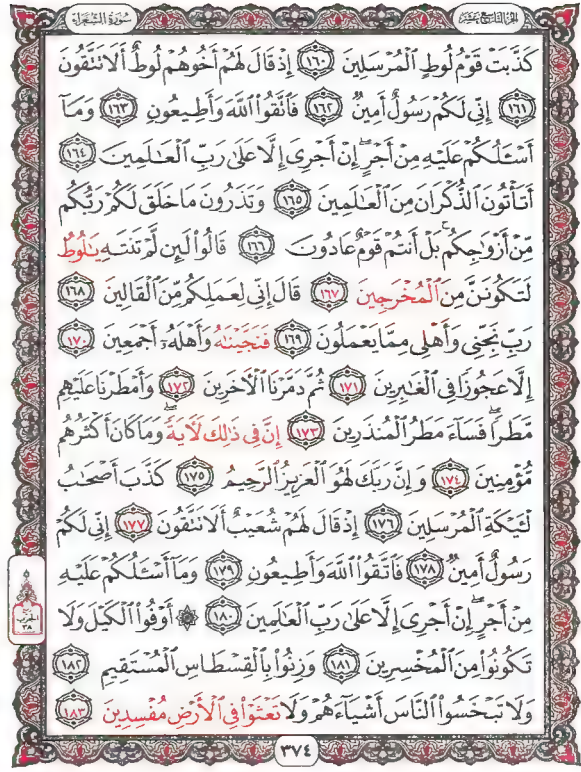 الجزء التاسع عشر
سورة الشعراء
كَذَّبَتْ قَوْمُ لُوطٍ الْمُرْسَلِينَ ﴿١٦٠﴾ إِذْ قَالَ لَهُمْ أَخُوهُمْ لُوطٌ أَلَا تَتَّقُونَ
﴿١٦١﴾ إِنِّي لَكُمْ رَسُولٌ أَمِينٌ ﴿١٦٢﴾ فَاتَّقُوا اللَّهَ وَأَطِيعُونِ ﴿١٦٣﴾ وَمَا
أَسْـَٔلُكُمْ عَلَيْهِ مِنْ أَجْرٍ ۖ إِنْ أَجْرِيَ إِلَّا عَلَىٰ رَبِّ الْعَـٰلَمِينَ ﴿١٦٤﴾
أَتَأْتُونَ الذُّكْرَانَ مِنَ الْعَـٰلَمِينَ ﴿١٦٥﴾ وَتَذَرُونَ مَا خَلَقَ لَكُمْ رَبُّكُم
مِّنْ أَزْوَٰجِكُم ۚ بَلْ أَنتُمْ قَوْمٌ عَادُونَ ﴿١٦٦﴾ قَالُوا لَئِن لَّمْ تَنتَهِ يَـٰلُوطُ
لَتَكُونَنَّ مِنَ الْمُخْرَجِينَ ﴿١٦٧﴾ قَالَ إِنِّي لِعَمَلِكُم مِّنَ الْقَالِينَ ﴿١٦٨﴾
رَبِّ نَجِّنِي وَأَهْلِي مِمَّا يَعْمَلُونَ ﴿١٦٩﴾ فَنَجَّيْنَـٰهُ وَأَهْلَهُۥ أَجْمَعِينَ ﴿١٧٠﴾
إِلَّا عَجُوزًا فِي الْغَـٰبِرِينَ ﴿١٧١﴾ ثُمَّ دَمَّرْنَا الْآخَرِينَ ﴿١٧٢﴾ وَأَمْطَرْنَا عَلَيْهِم
مَّطَرًا ۖ فَسَاءَ مَطَرُ الْمُنذَرِينَ ﴿١٧٣﴾ إِنَّ فِي ذَٰلِكَ لَآيَةً ۖ وَمَا كَانَ أَكْثَرُهُم
مُّؤْمِنِينَ ﴿١٧٤﴾ وَإِنَّ رَبَّكَ لَهُوَ الْعَزِيزُ الرَّحِيمُ ﴿١٧٥﴾ كَذَّبَ أَصْحَـٰبُ
لْـَٔيْكَةِ الْمُرْسَلِينَ ﴿١٧٦﴾ إِذْ قَالَ لَهُمْ شُعَيْبٌ أَلَا تَتَّقُونَ ﴿١٧٧﴾ إِنِّي لَكُمْ
رَسُولٌ أَمِينٌ ﴿١٧٨﴾ فَاتَّقُوا اللَّهَ وَأَطِيعُونِ ﴿١٧٩﴾ وَمَا أَسْـَٔلُكُمْ عَلَيْهِ
مِنْ أَجْرٍ ۖ إِنْ أَجْرِيَ إِلَّا عَلَىٰ رَبِّ الْعَـٰلَمِينَ ﴿١٨٠﴾ ۞ أَوْفُوا الْكَيْلَ وَلَا
تَكُونُوا مِنَ الْمُخْسِرِينَ ﴿١٨١﴾ وَزِنُوا بِالْقِسْطَاسِ الْمُسْتَقِيمِ ﴿١٨٢﴾
وَلَا تَبْخَسُوا النَّاسَ أَشْيَاءَهُمْ وَلَا تَعْثَوْا فِي الْأَرْضِ مُفْسِدِينَ ﴿١٨٣﴾
الحزب
٣٨
٣٧٤